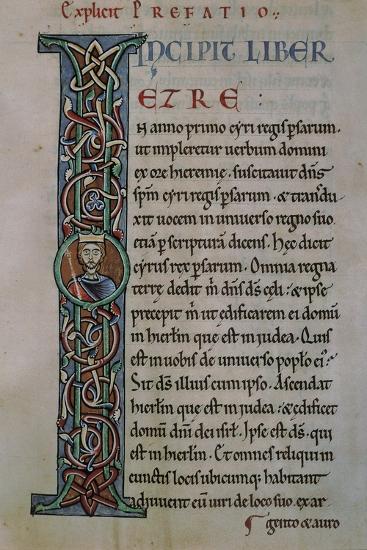 Explicit PREFATIO.
INCIPIT LIBER
EZRE:
IN anno primo cyri regis psarum.
ut impleretur verbum domini
ex ore hieremie. suscitauit dns
spm cyri regis psarum. & transdu
xit uocem in uniuerso regno suo
etiā p scripturā dicens. Hęc dicit
cyrus rex psarum. Omnia regna
terrę dedit m dns ds cęli. & ipse
precepit m ut edificarem ei domū
in hierlm que est in iudea. Quis
est in uobis de uniuerso poplo ei?
Sit ds illius cum ipso. Ascendat
hierlm que est in iudea. & edificet
domū dni dei isrl. Ipse est ds. qui
est in hierlm. Et omnes reliqui in
cunctis locis ubicumq; habitant
adiuuent eū uiri de loco suo. ex ar
gento & auro